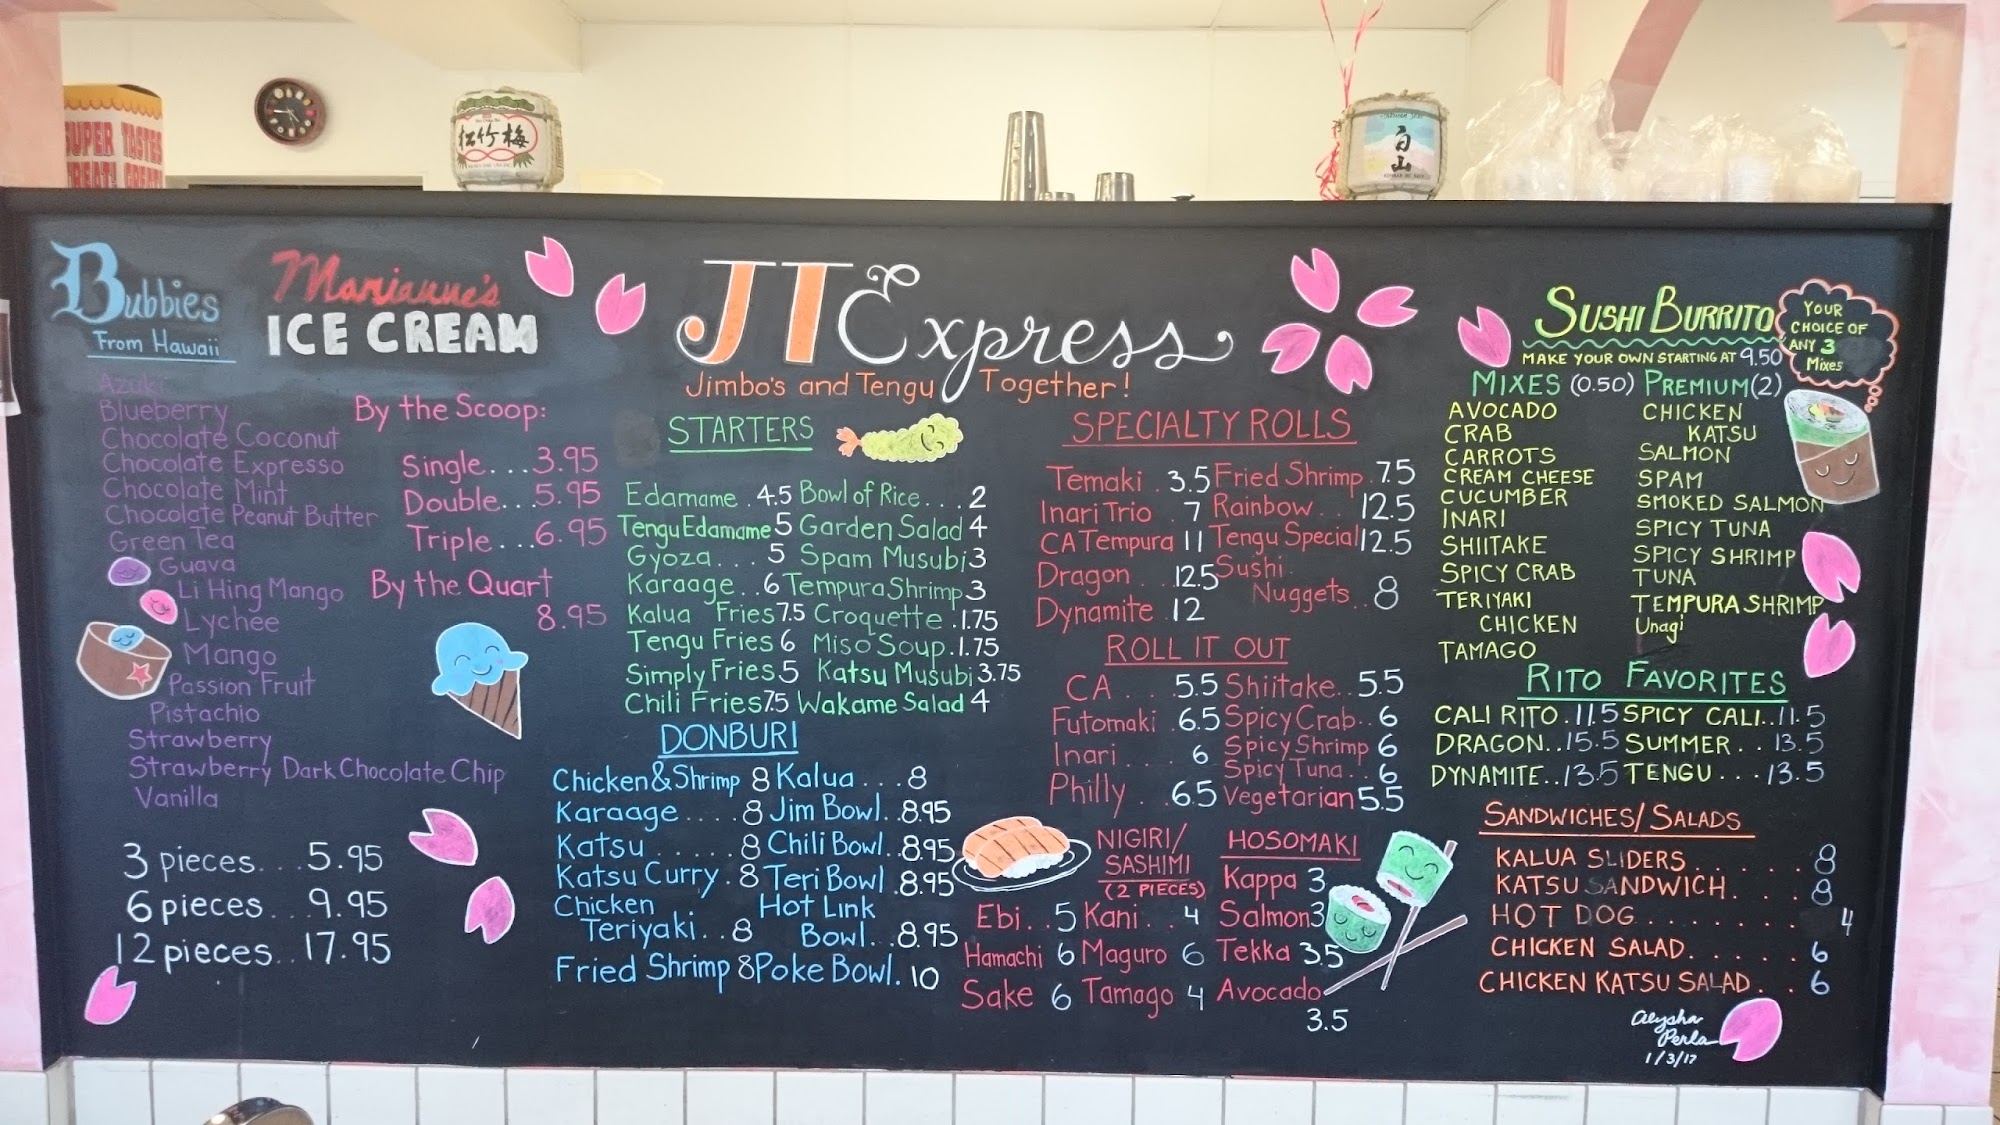 SUPER TASTES
GREAT! GREAT!
松竹梅
白山
Bubbies
From Hawaii
Azuki
Blueberry
Chocolate Coconut
Chocolate Expresso
Chocolate Mint
Chocolate Peanut Butter
Green Tea
Guava
Li Hing Mango
Lychee
Mango
Passion Fruit
Pistachio
Strawberry
Strawberry Dark Chocolate Chip
Vanilla
3 pieces...5.95
6 pieces...9.95
12 pieces..17.95
Marianne's
ICE CREAM
By the Scoop:
Single...3.95
Double...5.95
Triple...6.95
By the Quart
8.95
JT Express
Jimbo's and Tengu Together!
STARTERS
Edamame .4.5 Bowl of Rice...2
Tengu Edamame 5 Garden Salad 4
Gyoza... 5 Spam Musubi 3
Karaage..6 Tempura Shrimp.3
Kalua Fries 7.5 Croquette.1.75
Tengu Fries 6 Miso Soup.1.75
Simply Fries 5 Katsu Musubi 3.75
Chili Fries 7.5 Wakame Salad 4
DONBURI
Chicken & Shrimp 8 Kalua...8
Karaage....8 Jim Bowl..8.95
Katsu.....8 Chili Bowl..8.95
Katsu Curry.8 Teri Bowl.8.95
Chicken Hot Link
Teriyaki..8 Bowl..8.95
Fried Shrimp 8 Poke Bowl.10
SPECIALTY ROLLS
Temaki .3.5 Fried Shrimp.7.5
Inari Trio .7 Rainbow..12.5
CA Tempura 11 Tengu Special 12.5
Dragon..12.5 Sushi
Dynamite.12 Nuggets..8
ROLL IT OUT
CA...5.5 Shiitake..5.5
Futomaki.6.5 Spicy Crab..6
Inari....6 Spicy Shrimp 6
Spicy Tuna..6
Philly..6.5 Vegetarian 5.5
NIGIRI/
SASHIMI
(2 PIECES)
Ebi..5 Kani..4
Hamachi 6 Maguro 6
Sake 6 Tamago 4
HOSOMAKI
Kappa 3
Salmon 3
Tekka 3.5
Avocado
3.5
SUSHI BURRITO
MAKE YOUR OWN STARTING AT 9.50
YOUR
CHOICE OF
ANY 3
Mixes
MIXES (0.50) PREMIUM (2)
AVOCADO
CRAB
CARROTS
CREAM CHEESE
CUCUMBER
INARI
SHIITAKE
SPICY CRAB
TERIYAKI
CHICKEN
TAMAGO
CHICKEN
KATSU
SALMON
SPAM
SMOKED SALMON
SPICY TUNA
SPICY SHRIMP
TUNA
TEMPURA SHRIMP
Unagi
RITO FAVORITES
CALI RITO.11.5 SPICY CALI..11.5
DRAGON..15.5 SUMMER..13.5
DYNAMITE..13.5 TENGU...13.5
SANDWICHES/SALADS
KALUA SLIDERS......8
KATSU SANDWICH....8
HOT DOG........4
CHICKEN SALAD.....6
CHICKEN KATSU SALAD..6
Alysha
Perla
1/3/17